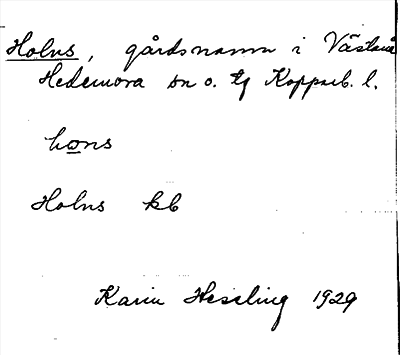 Holns, gårdsnamn i Västanå
Hedemora sn o. tg Kopparb. l.
hons
Holns kb
Karin Hessling 1929